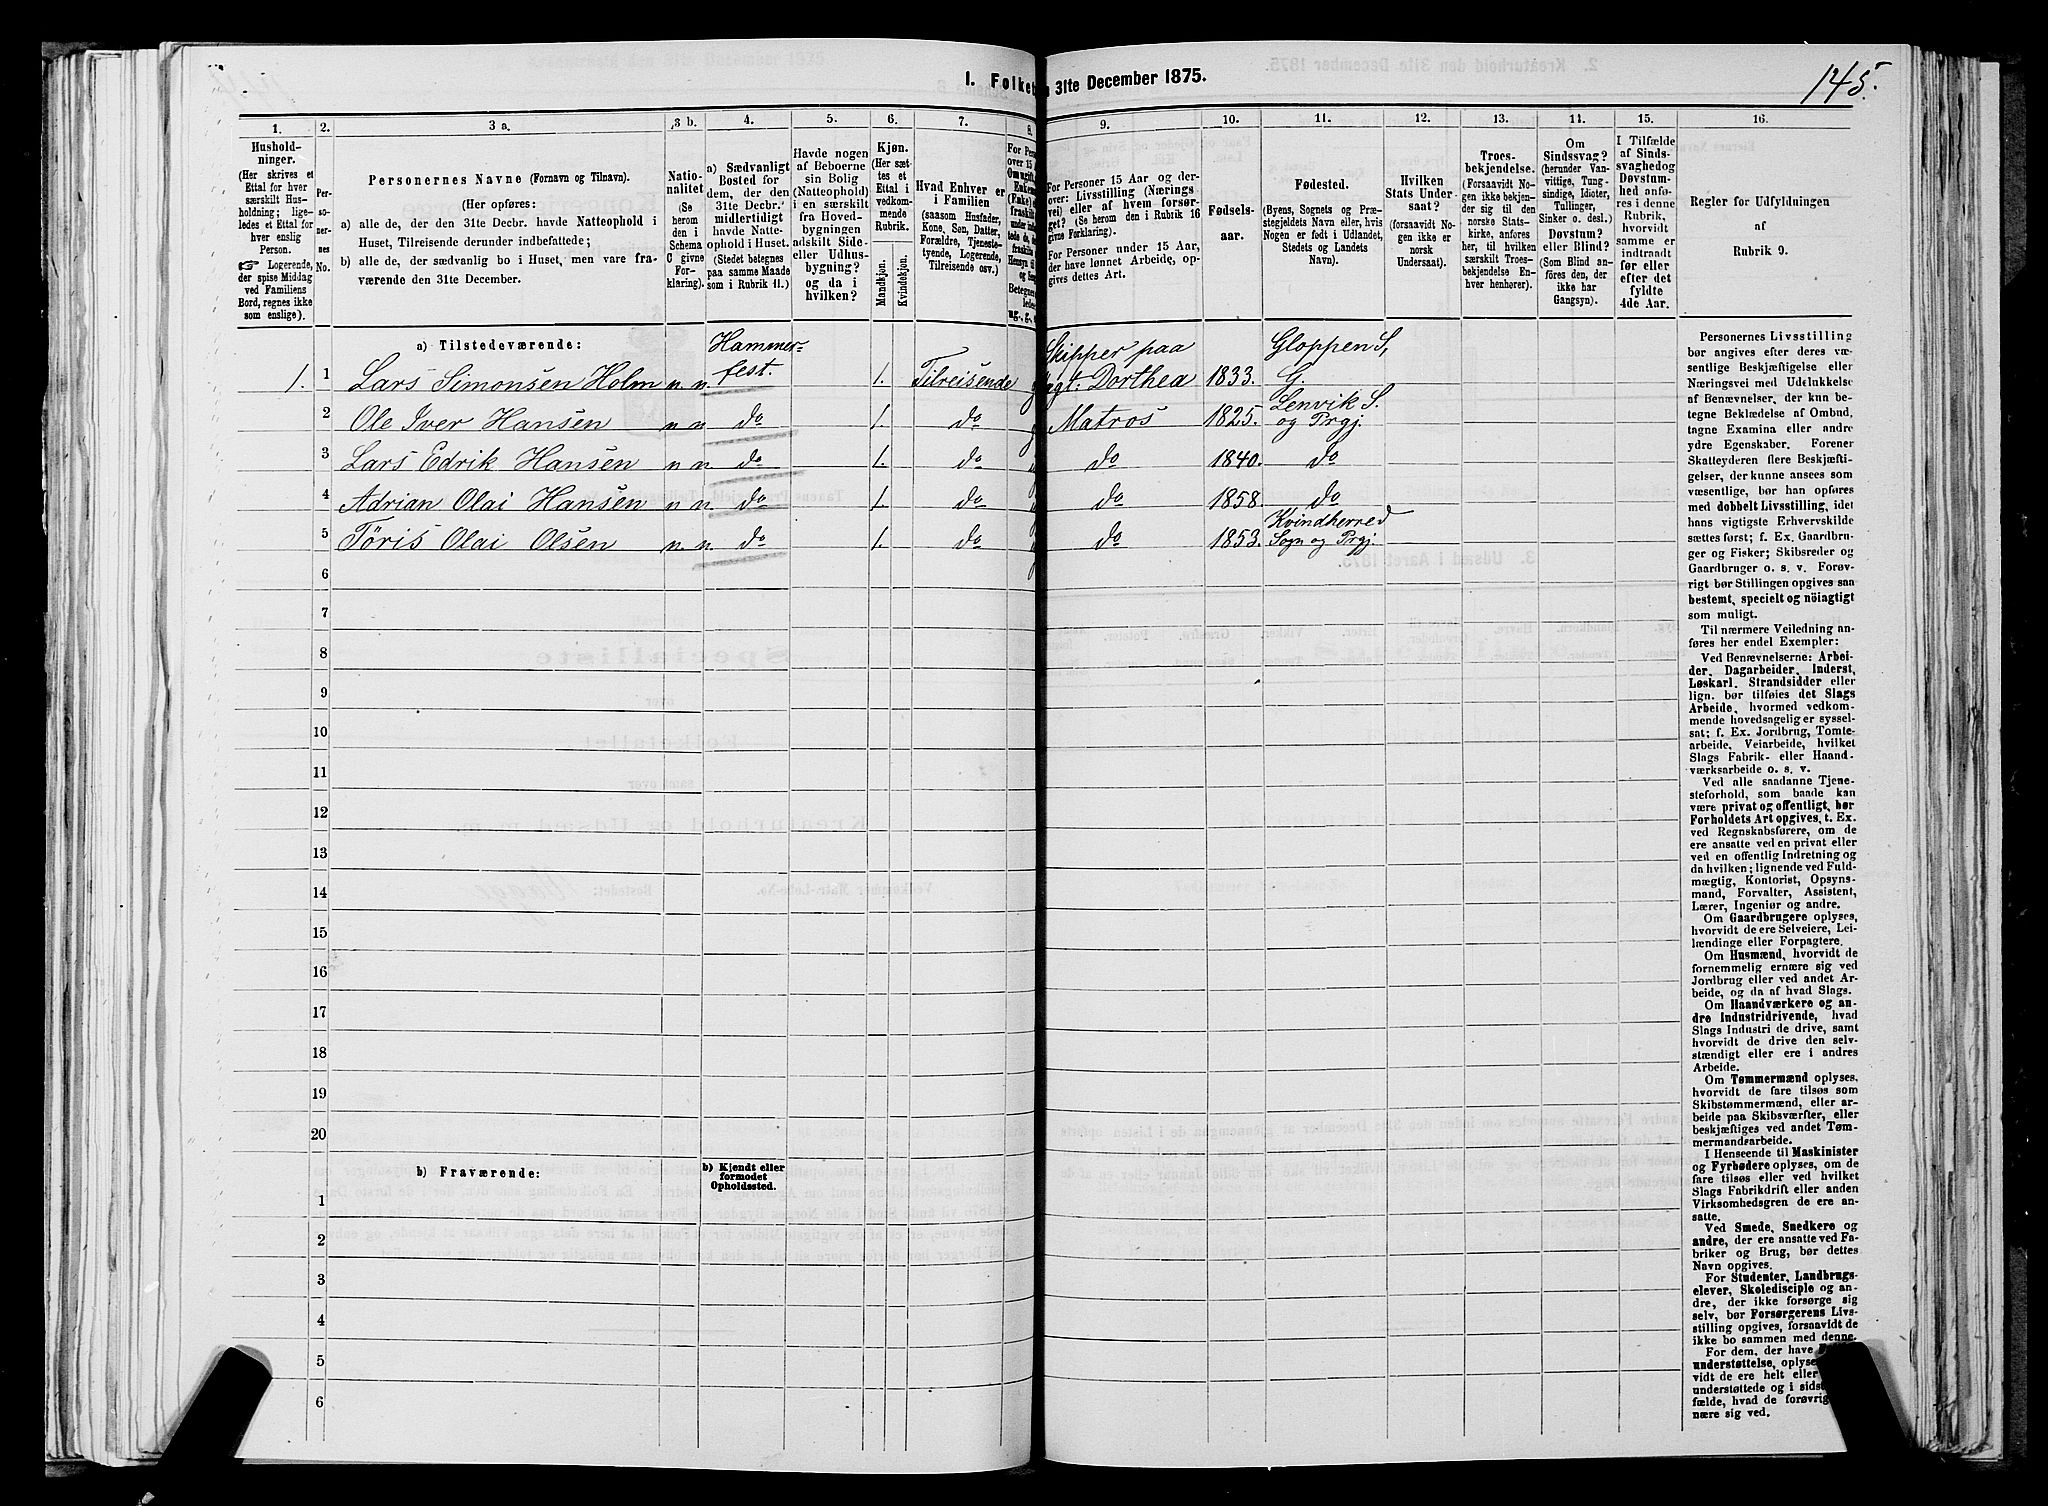 145.
I. Folket
n 31te December 1875.
1.
Hushold-
ninger.
(Her skrives et
Ettal for hver
særskilt Hus-
holdning; lige-
ledes et Ettal for
hver enslig
Person.
☞ Logerende,
der spise Middag
ved Familiens
Bord, regnes ikke
som enslige).
2.
Per-
so-
ner-
nes
No.
3 a.
Personernes Navne (Fornavn og Tilnavn).
(Her opføres:
a) alle de, der den 31te Decbr. havde Natteophold i
Huset, Tilreisende derunder indbefattede;
b) alle de, der sædvanlig bo i Huset, men vare fra-
værende den 31te December.
3 b.
Natio-
nalitet
(Se
herom
den i
Schema
C givne
For-
klaring).
4.
a) Sædvanligt
Bosted for
dem, der den
31te Decbr.
midlertidigt
havde Natte-
ophold i Huset.
(Stedet betegnes
paa samme Maade
som i Rubrik 11.)
5.
Havde nogen
af Beboerne
sin Bolig
(Natteophold)
i en særskilt
fra Hoved-
bygningen
adskilt Side-
eller Udhus-
bygning?
og da i
hvilken?
6.
Kjøn.
(Her sæt-
tes et
Ettal i
vedkom-
mende
Rubrik.
Mandkjøn.
Kvindekjøn.
7.
Hvad Enhver er
i Familien
(saasom Husfader,
Kone, Søn, Datter,
Forældre, Tjeneste-
tyende, Logerende,
Tilreisende osv.)
8.
9.
For Personer 15 Aar og der-
over: Livsstilling (Nærings-
vei) eller af hvem forsør-
get? (Se herom i Rubrik 16
givne Forklaring).
For Personer under 15 Aar,
der have lønnet Arbeide, op-
gives dettes Art.
10.
Fødsels-
aar.
11.
Fødested.
(Byens, Sognets og Præ-
stegjeldets Navn eller, hvis
Nogen er født i Udlandet,
Stedets og Landets
Navn).
12.
Hvilken
Stats Under-
saat?
(forsaavidt No-
gen ikke er
norsk
Undersaat).
13.
Troes-
bekjendelse.
(Forsaavidt No-
gen ikke bekjen-
der sig til den
norske Stats-
kirke, anføres
her, til hvilken
særskilt Troes-
bekjendelse En-
hver henhører).
14.
Om
Sindssvag?
(herunder Van-
vittige, Tung-
sindige, Idioter,
Tullinger,
Sinker o. desl.)
Døvstum?
eller Blind?
(Som Blind an-
føres den, der
ikke har
Gangsyn).
15.
I Tilfælde
af Sinds-
svaghedog
Døvstum-
hed anfø-
res i denne
Rubrik,
hvorvidt
samme er
indtraadt
før eller
efter det
fyldte
4de Aar.
16.
Regler for Udfyldningen
af
Rubrik 9.
a) Tilstedeværende:
1. 1 Lars Simonsen Holm n n. Hammer-
fest. 1. Tilreisende g Skipper paa
Jagt. Dorthea 1833. Gloppen S,
G.
2 Ole Iver Hansen n n do 1. do Matros 1825. Lenvik S.
og Prgj.
3 Lars Edrik Hansen n n. do 1. do do 1840. do
4 Adrian Olai Hansen n n. do 1. do do 1858. do
5 Tøris Olai Olsen n. n. do 1. do do 1853. Kvindherred
Sogn og Prgj.
6
7
8
9
10
11
12
13
14
15
16
17
18
19
20
b) Fraværende:
b) Kjendt eller
formodet
Opholdssted.
1
2
3
4
5
6
Personernes Livsstilling
bør angives efter deres væ-
sentlige Beskjæftigelse eller
Næringsvei med Udelukkelse
af Benævnelser, der kun be-
tegne Beklædelse af Ombud,
tagne Examina eller andre
ydre Egenskaber. Forener
Skatteyderen flere Beskjæfti-
gelser, der kunne ansees som
væsentlige, bør han opføres
med dobbelt Livsstilling, idet
hans vigtigste Erhvervskilde
sættes først; f. Ex. Gaardbru-
ger og Fisker; Skibsreder og
Gaardbruger o. s. v. Forøv-
rigt bør Stillingen opgives saa
bestemt, specielt og nöiagtigt
som muligt.
Til nærmere Veiledning an-
føres her endel Exempler:
Ved Benævnelserne: Arbei-
der, Dagarbeider, Inderst,
Løskarl, Strandsidder eller
lign. bør tilføies det Slags
Arbeide, hvormed vedkom-
mende hovedsagelig er syssel-
sat; f. Ex. Jordbrug, Tomte-
arbeide, Veiarbeide, hvilket
Slags Fabrik- eller Haand-
værksarbeide o. s. v.
Ved alle saadanne Tjene-
steforhold, som baade kan
være privat og offentligt, bør
Forholdets Art opgives, t. Ex.
ved Regnskabsførere, om de
ere ansatte ved en privat eller
ved en offentlig Indretning og
da hvilken; lignende ved Fuld-
mægtig, Kontorist, Opsyns-
mand, Forvalter, Assistent,
Lærer, Ingeniør og andre.
Om Gaardbrugere oplyses,
hvorvidt de ere Selveiere, Lei-
lændinge eller Forpagtere.
Om Husmænd, hvorvidt de
fornemmelig ernære sig ved
Jordbrug eller ved andet Ar-
beide, og da af hvad Slags.
Om Haandværkere og an-
dre Industridrivende, hvad
Slags Industri de drive, samt
hvorvidt de drive den selv-
stændigt eller ere i andres
Arbeide.
Om Tømmermænd oplyses,
hvorvidt de fare tilsøs som
Skibstømmermænd, eller ar-
beide paa Skibsværfter, eller
beskjæftiges ved andet Tøm-
mermandsarbeide.
I Henseende til Maskinister
og Fyrbødere oplyses, om de
fare tilsøs eller ved hvilket
Slags Fabrikdrift eller anden
Virksomhedsgren de ere an-
satte.
Ved Smede, Snedkere og
andre, der ere ansatte ved Fa-
briker og Brug, bør dettes
Navn opgives.
For Studenter, Landbrugs-
elever, Skoledisciple og an-
dre, der ikke forsørge sig
selv, bør Forsørgerens Livs-
stilling opgives, forsaavidt de
ikke bo sammen med denne.
For dem, der have
understøttelse, oplyse
vidt de ere helt eller
understøttede og i sidst
fælde, hvad de forøvrig
nære sig ved.